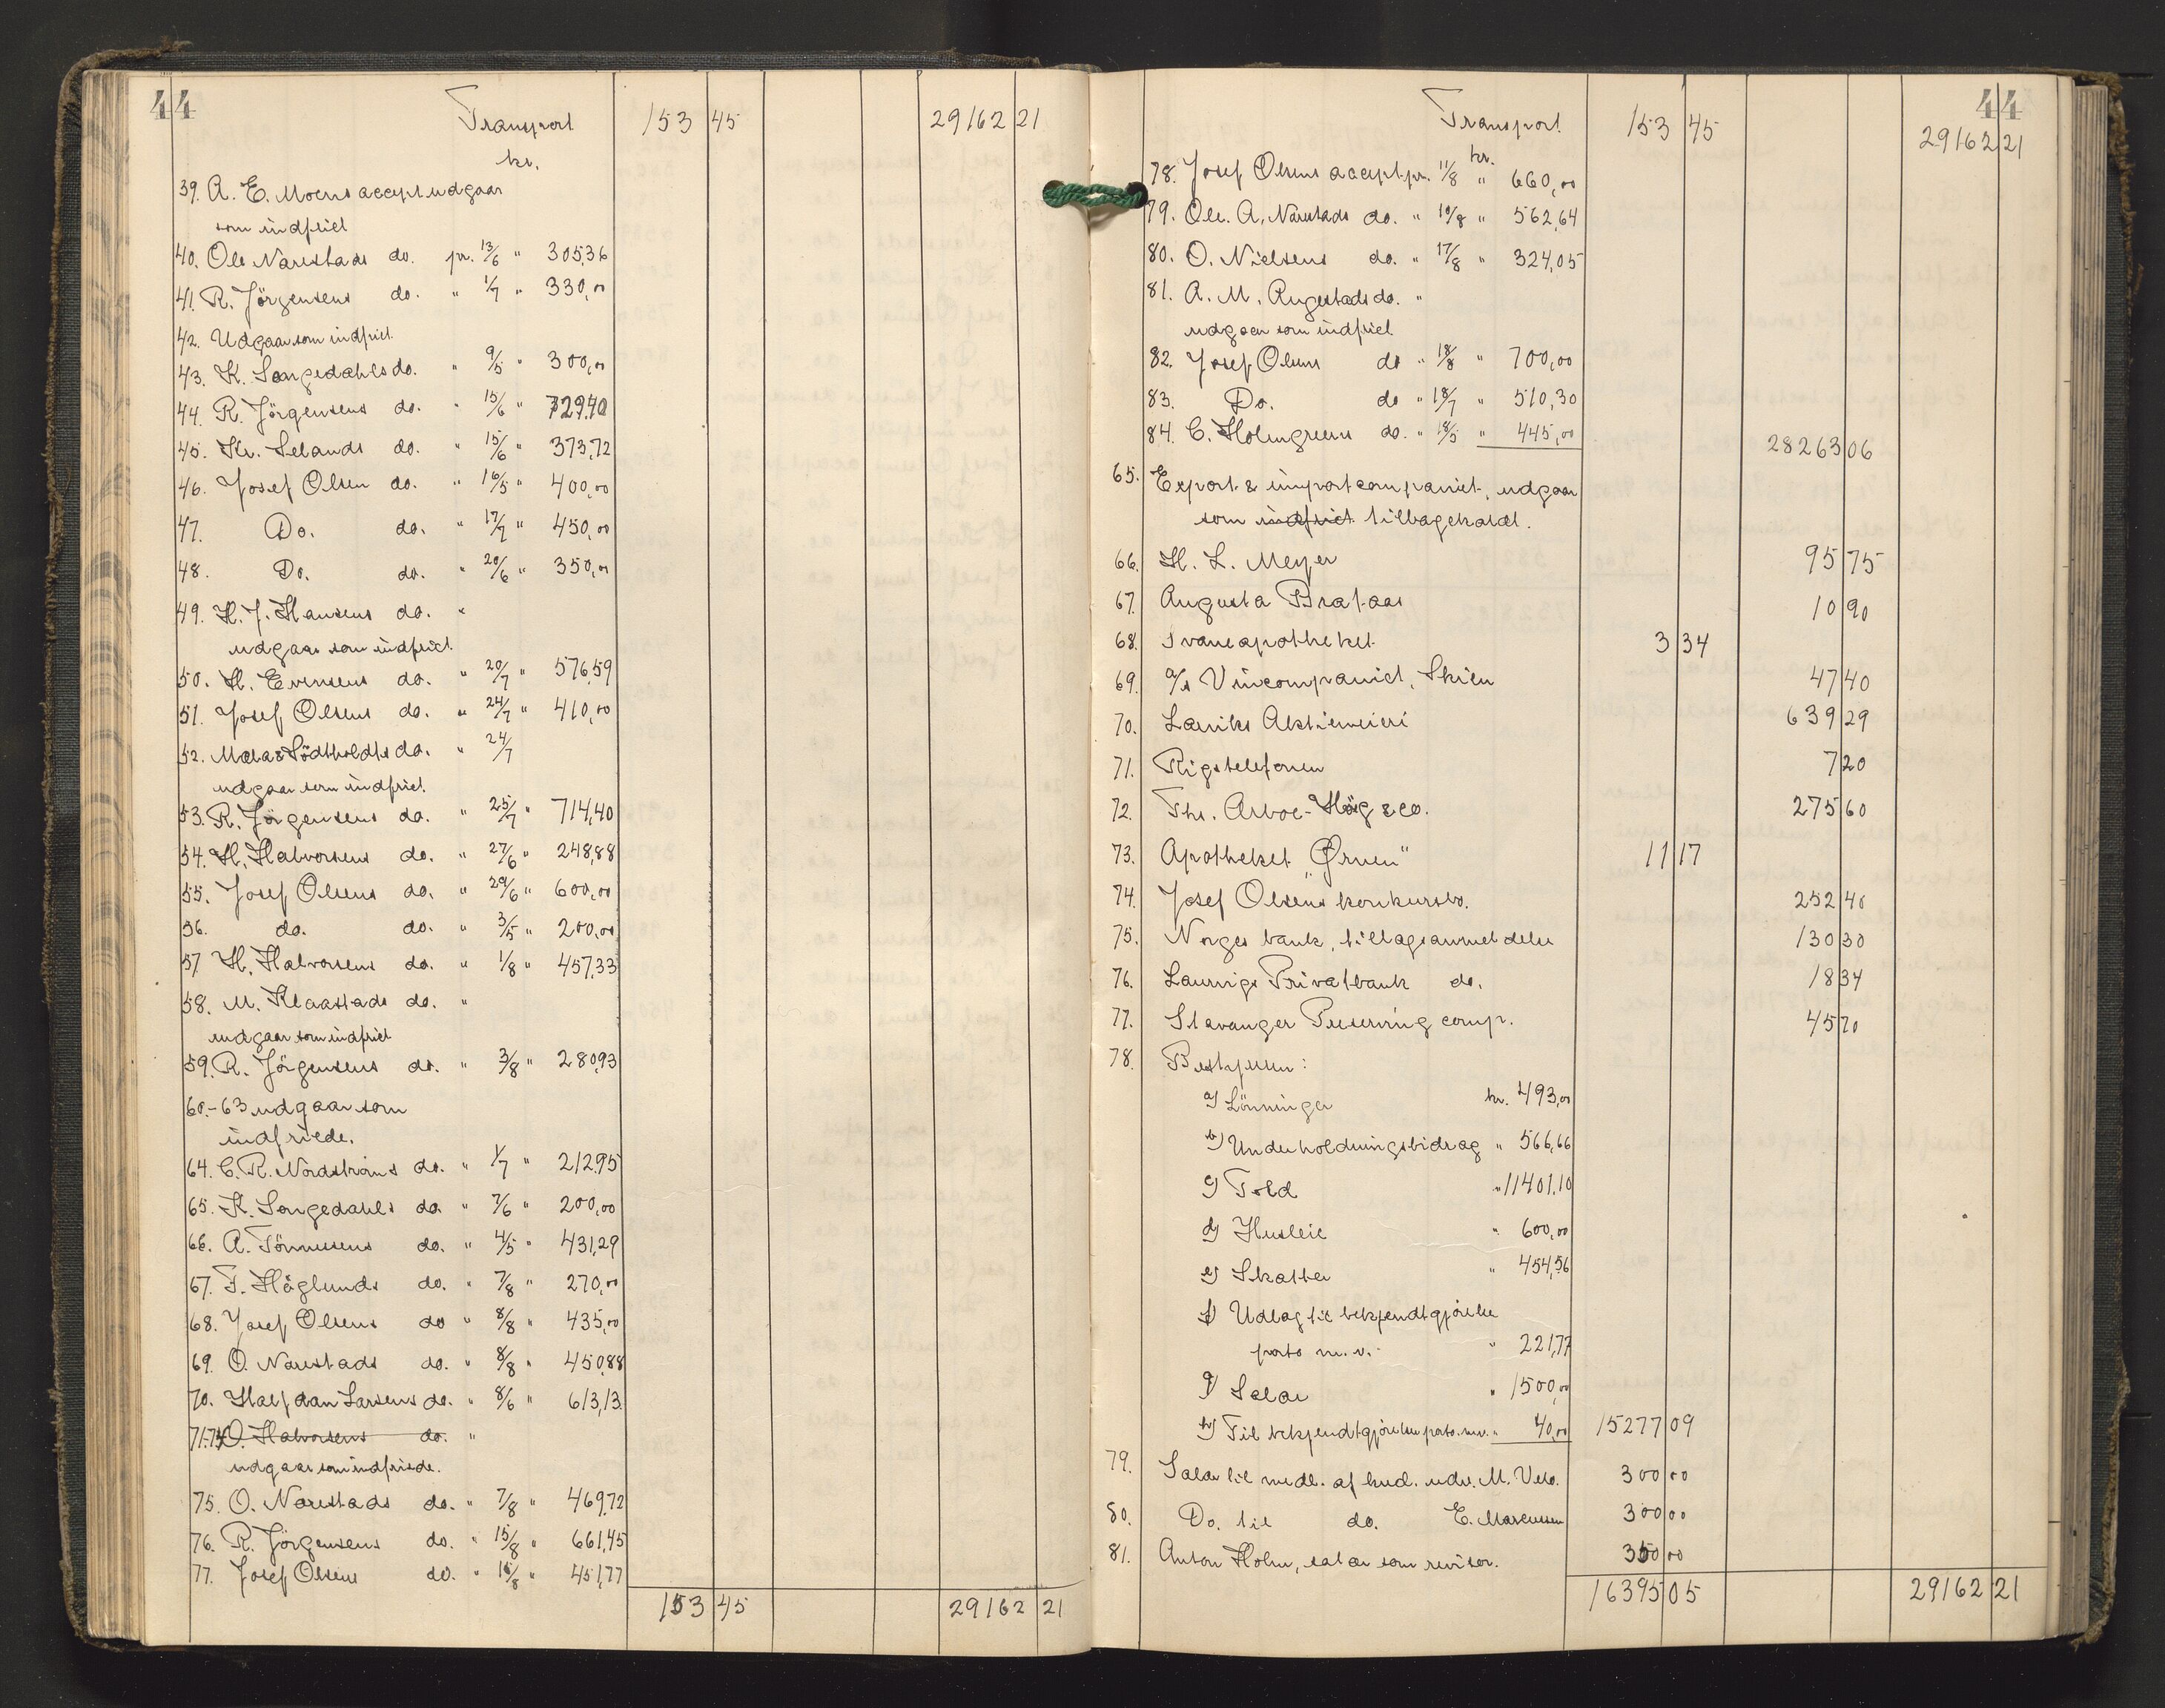 44
Transport 153 45 29162 21
kr.
39. A. E. Moens accept udgaar
som indfriet
40. Ole Narestads do. pr. 13/6 " 305,36
41. R. Jörgensens do. " 1/7 " 330,00
42. Udgaar som indfriet.
43. K. Songedahls do. " 9/5 " 300,00
44. R. Jörgensens do. " 15/6 " 729,40
45. Kr. Selands do. " 15/6 " 373,72
46. Josef Olsen do. " 16/5 " 400,00
47. Do. do. " 17/7 " 450,00
48. Do. do. " 20/6 " 350,00
49. H. J. Hansens do. "
udgaar som indfriet.
50. H. Evensens do. " 20/7 " 576,59
51. Josef Olsens do. " 24/7 " 410,00
52. do. " 24/7
udgaar som indfriet.
53. R. Jörgensens do. " 25/7 " 714,40
54. H. Halvorsens do. " 27/6 " 248,88
55. Josef Olsens do. " 29/6 " 600,00
56. do. do. " 3/5 " 200,00
57 H. Halvorsens do. " 1/8 " 457,33
58. M. Klaastads do. "
udgaar som indfriet
59. R. Jörgensens do. " 3/8 " 280,93
60.-63 udgaar som
indfriede.
64. C. R. Nordströms do. " 1/7 " 212,95
65. K. Songedahls do. " 7/6 " 200,00
66. A. Tönnesens do. " 4/5 " 431,29
67. F. Höglunds do. " 7/8 " 270,00
68. Josef Olsens do " 8/8 " 435,00
69. O. Narestads do. " 8/8 " 450,88
70. Halfdan Larsens do. " 8/6 " 613,13.
71-74 O. Halvorsens do. "
udgaar som indfriede.
75. O. Narestads do. " 7/8 " 469,72
76. R. Jörgensens do. " 15/8 " 661,45
77. Josef Olsens do. " 18/8 " 451,77
153 45 29162 21
44
Transport 153 45 29162 21
kr.
78. Josef Olsens accept pr. 11/8 " 660,00
79. Ole. A. Narestads do. " 19/8 " 562,64
80. O. Nielsens do. " 17/8 " 324,05
81. A. M. Rugestads do. "
udgaar som indfriet
82. Josef Olsens do " 18/8 " 700,00
83. Do. do " 18/7 " 510,30
84. C. Holmgreens do. " 18/5 " 445,00 28263 06
65. Export & importcompaniet, udgaar
som indfriet tilbagekaldt.
66. H. L. Meyer 95 75
67. Augusta Brataas 10 90
68. Svaneapotheket 3 34
69. A/s Vincompaniet, Skien 47 40
70. Larviks Aktiemeieri 639 29
71. Rigstelefonen 7 20
72. Thr. Arboe-Høeg & co. 275 60
73. Apotheket "Ørnen" 11 17
74. Josef Olsens konkursbo. 252 40
75. Norges bank, tillægsanmeldelse 130 30
76. Laurvigs Privatbank do. 18 34
77. Stavanger Preserving comp. 45 70
78. Bestyren:
a) Lönninger kr. 493,00
b) Underholdningsbidrag " 566,66
c) Told " 11401,10
d) Husleie " 600,00
e) Skatter " 454,56
f) Udlæg til bekjendtgjörelse
porto m.v. " 221,77
g) Salær " 1500,00
h) Til bekjendtgjörelse porto m.v. " 40,00 15277 09
79. Salær til medl. af kred. udv. M. Velo. 300 00
80. Do. til do. E. Marcussen 300 00
81. Anton Holm, salær som revisor. 350 00
16395 05 29162 21